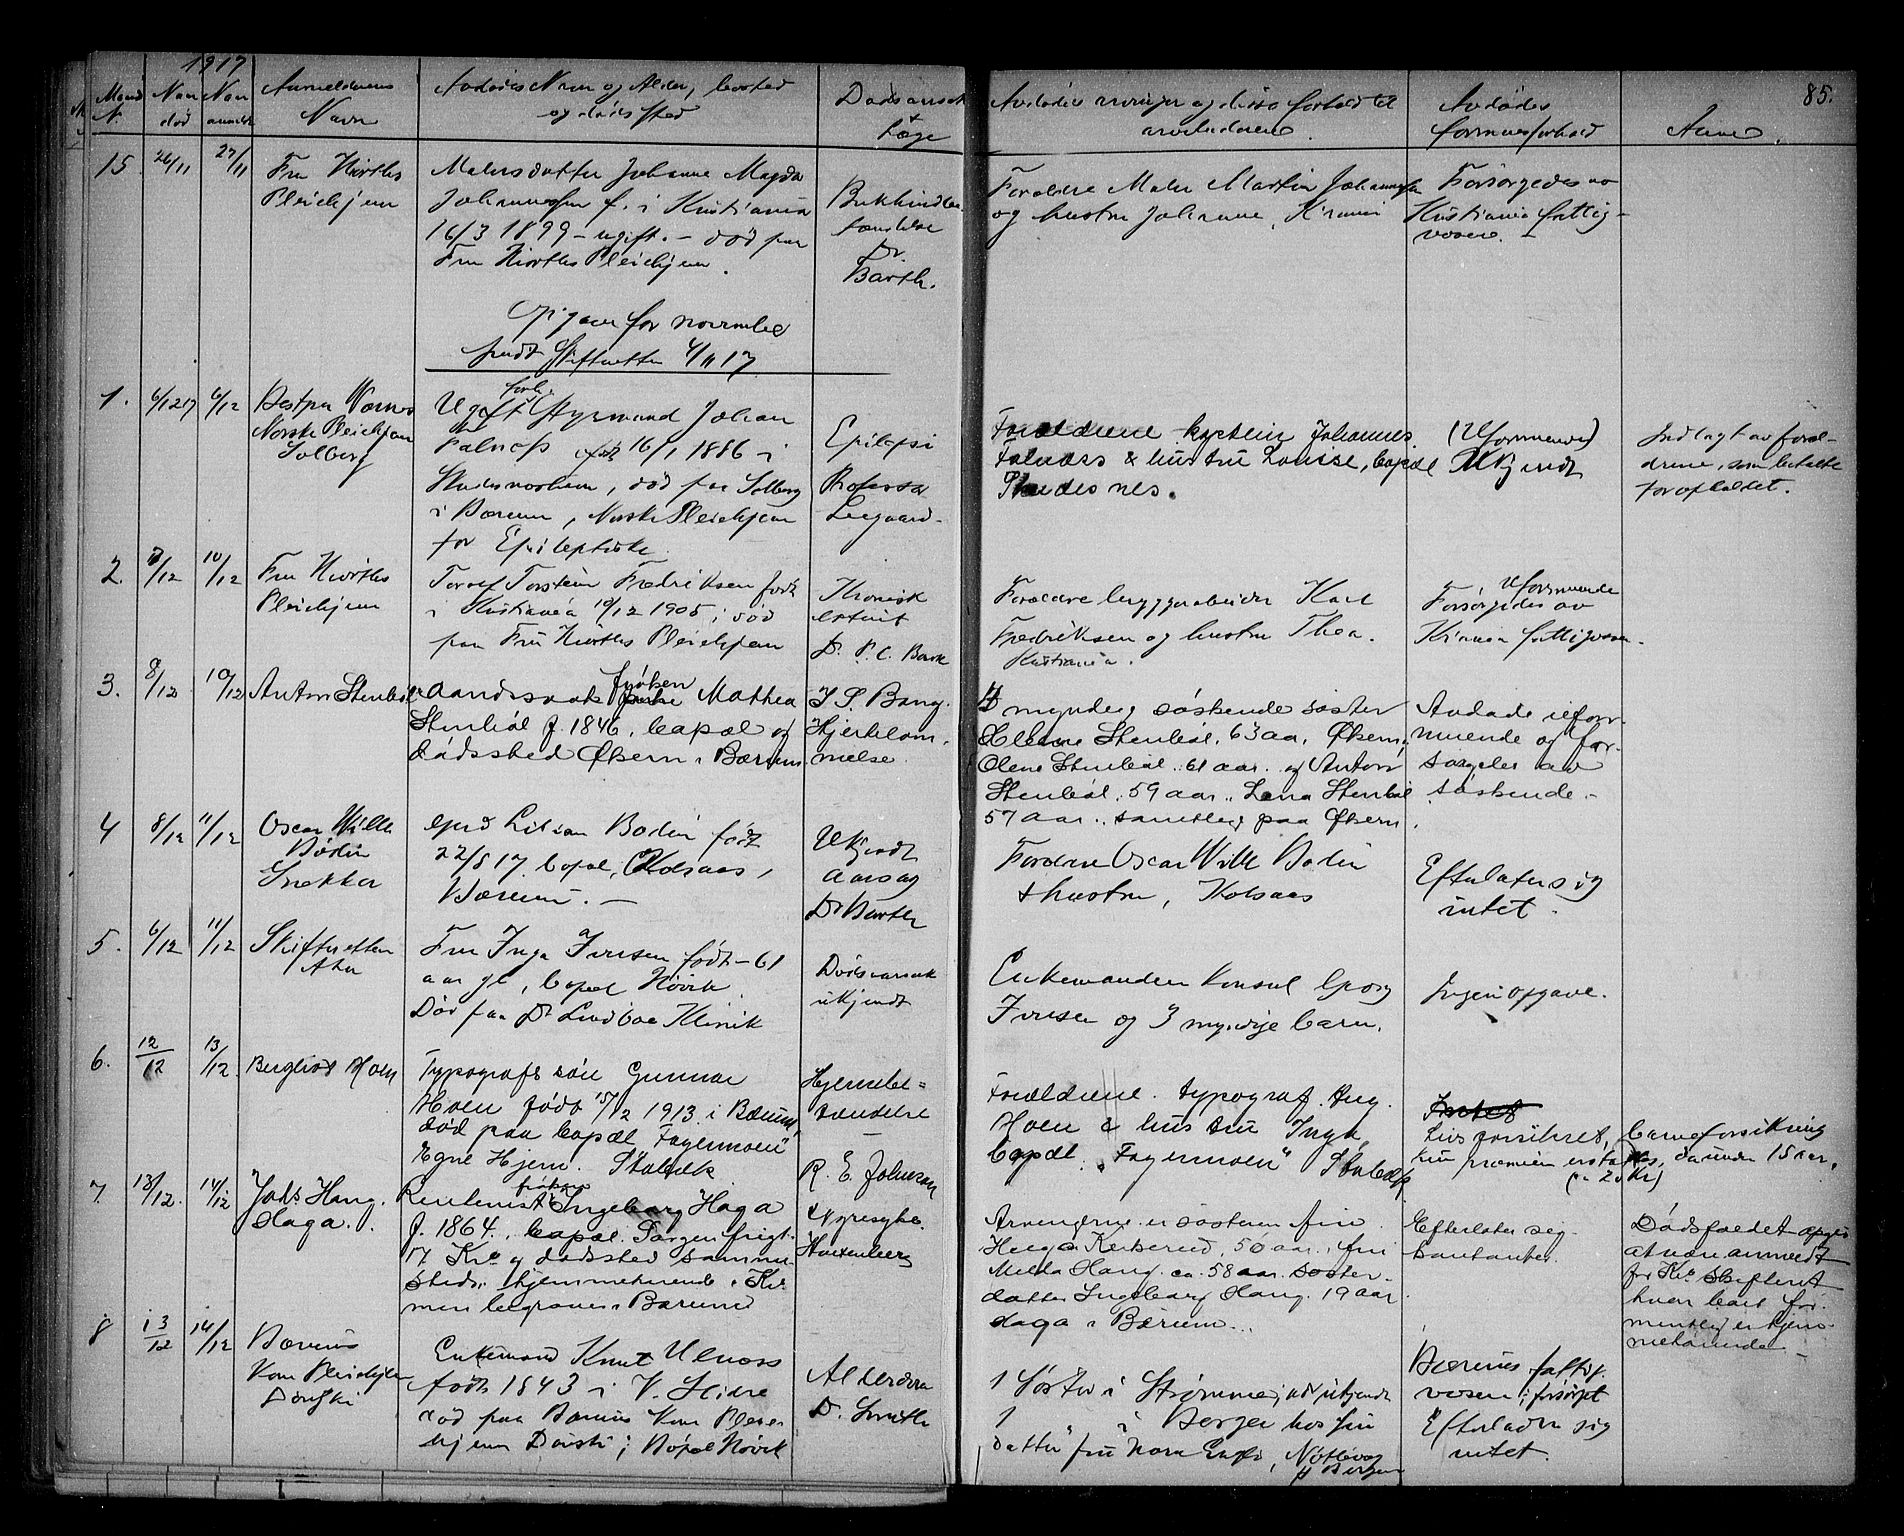 1917
85.
Maaned N.
Naar død
Naar anmeldt
Anmelderens
Navn
Avdødes Navn og Alder, bosted
og dødssted
Dødsaarsak
+
Læge
Avdødes arvinger og disses forhold til
arveladeren
Avdødes
formuesforhold
Anm.
15
26/11
27/11
Fru Hiorths
Pleiehjem
Malersdatter Johanne Magda
Johannessen f. i Kristiania
16/3 1899 – ugift. – død paa
Fru Hiorths Pleiehjem.
Dr.
Barth.
Forældre Maler Martin Johannessen
og hustru Johanne, Kr.ania
Forsørgedes av
Kristiania fattig-
væsen.
Opgaver for november
sendt Skifteretten 4/11 17
1.
6/12 17
6/12
Norske Pleiehjem
Solberg
Ugift Styrmand Johan
Falnæss født 16/1 1886 i
Skudesneshavn, død paa Solberg
i Bærum, Norske Pleiehjem
for Epileptiske.
Epilepsi
Professor
Leegaard
Forældrene kaptein Johannes
Falnæss & hustru Louise, bopæl
Skudesnes.
(Uformuende)
Ukjendt
Indlagt av foræl-
drene, som betalte
for opholdet.
2.
7/12
10/12
Fru Hiorths
Pleiehjem
Torolf Torstein Fredriksen født
i Kristiania 10/12 1905, død
paa Fru Hiorths Pleiehjem
Kronisk
Forældre byggearbeider Karl
Fredriksen og hustru Thea.
Kristiania.
Uformuende
Forsørgedes av
Kr.ania fattigvæsen.
3.
8/12
10/12
Anton Stenbøl
aandssvak frøken Mathea
Stenbøl f. 1846, bopæl og
dødssted Økern i Bærum
I. S. Bang.
Hjertelam-
melse.
4 myndig søskende søster
Helene Stenbøl. 63 aar, Økern.
Olene Stenbøl. 61 aar. og Anton
Stenbøl. 59 aar. Lena Stenbøl
57 aar., samtlig paa Økern.
Avdøde ufor-
muende og for-
sørgeles av
søskende. –
4
8/12
11/12
Oscar Wilh.
Bodin
Snekker
Gerd Lilian Bodin født
22/8 17, bopæl, Kolsaas,
Bærum. –
Ukjendt
aarsag
Dr Barth
Forældre Oscar Wilh Bodin
& hustru, Kolsaas
Efterlater sig
intet.
5.
6/12
11/12
Skifteretten
Aker
Fru Inga Iversen født – 61
aar gl, bopæl Høvik
Død paa Dr Lindboe Klinik
Dødsaarsak
ukjendt
Enkemanden Konsul Georg
Iversen og 3 myndige barn.
Ingen opgave.
6.
12/12
13/12.
Bergliot Hoen
Typografs søn Gunnar
Hoen født 15/2 1913 i Bærum
død paa bopæl "Fagermoen"
Egne Hjem. Stabæk
Hjernebe-
tændelse
R. E. Johnson
Forældrene. typograf. Aug.
Hoen & hustru Inga,
bopæl. "Fagermoen" Stabæk
Intet
Livsforsikret,
kun præmien erstattes,
(ca 20 Kr)
barneforsikring
da under 15 aar.
7.
13/12.
14/12
Johs Haug.
Haga.
Rentenist frøken Ingeborg Haga
f. 1864., bopæl Jørgen
17 Kr.a og dødssted samme-
steds. hjemmehørende i Kr.a
men begraves i Bærum
Arvingerne er søsteren fru
Helga Kekserud, 50 aar., fru
Milda Haug. ca. 58 aar. søster-
datter Ingeborg Haug. 19 aar
Haga i Bærum...
Efterlater sig
kontanter.
Dødsfaldet opgis
at være anmeldt
for Kr.a Skifteret
hvor boet for-
mentlig er hjem-
mehørende –
8
13/12
14/12
Bærums
Kom Pleiehjem
Dønski
Enkemand Knut Ulnæss
født 1843 i V. Slidre
død paa Bærums Kom Pleie-
hjem Dønski, Bopæl Høvik
Alderdom
D. Smith
1 Søster i Strømme, adr ukjendt
1 " i Bergen hos sin
datter fru Nora Engh, Nøstevog
Bergen
Bærums fattig.
væsen forsørget
Efterladt sig
intet.